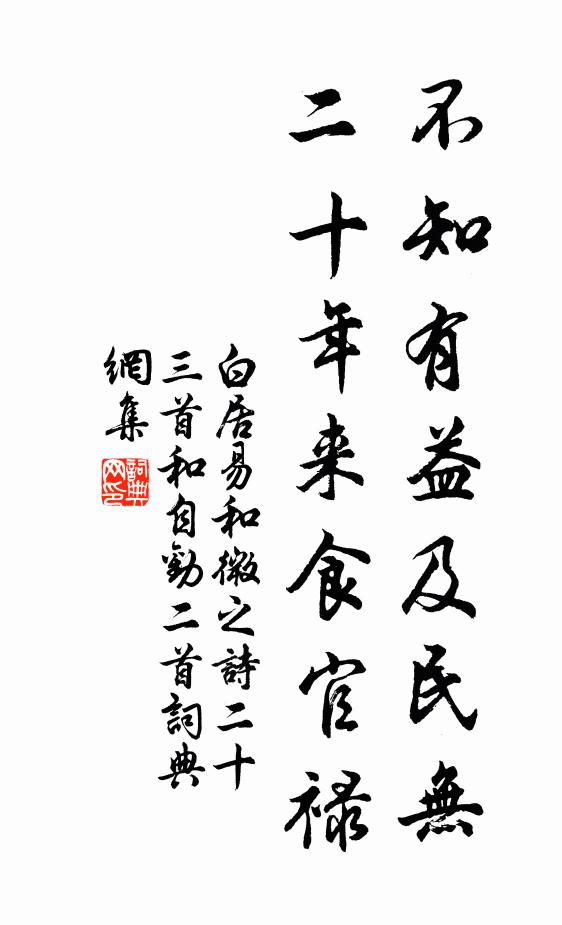 不知有益及民無
二十年来食官禄
白居易和微之詩二十
三首和自勸二首詞典
網集
詞典網印